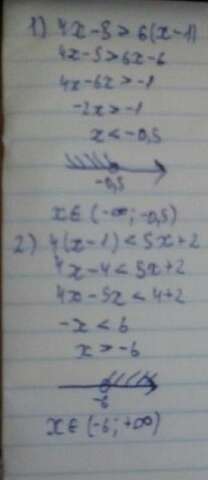 1) 4x-5>6(x-1)
4x-5>6x-6
4x-6x>-1
-2x>-1
x<-0,5
-0,5
x∈(-∞; -0,5)
2) 4(x-1)<5x+2
4x-4<5x+2
4x-5x<4+2
-x<6
x>-6
-6
x∈(-6; +∞)